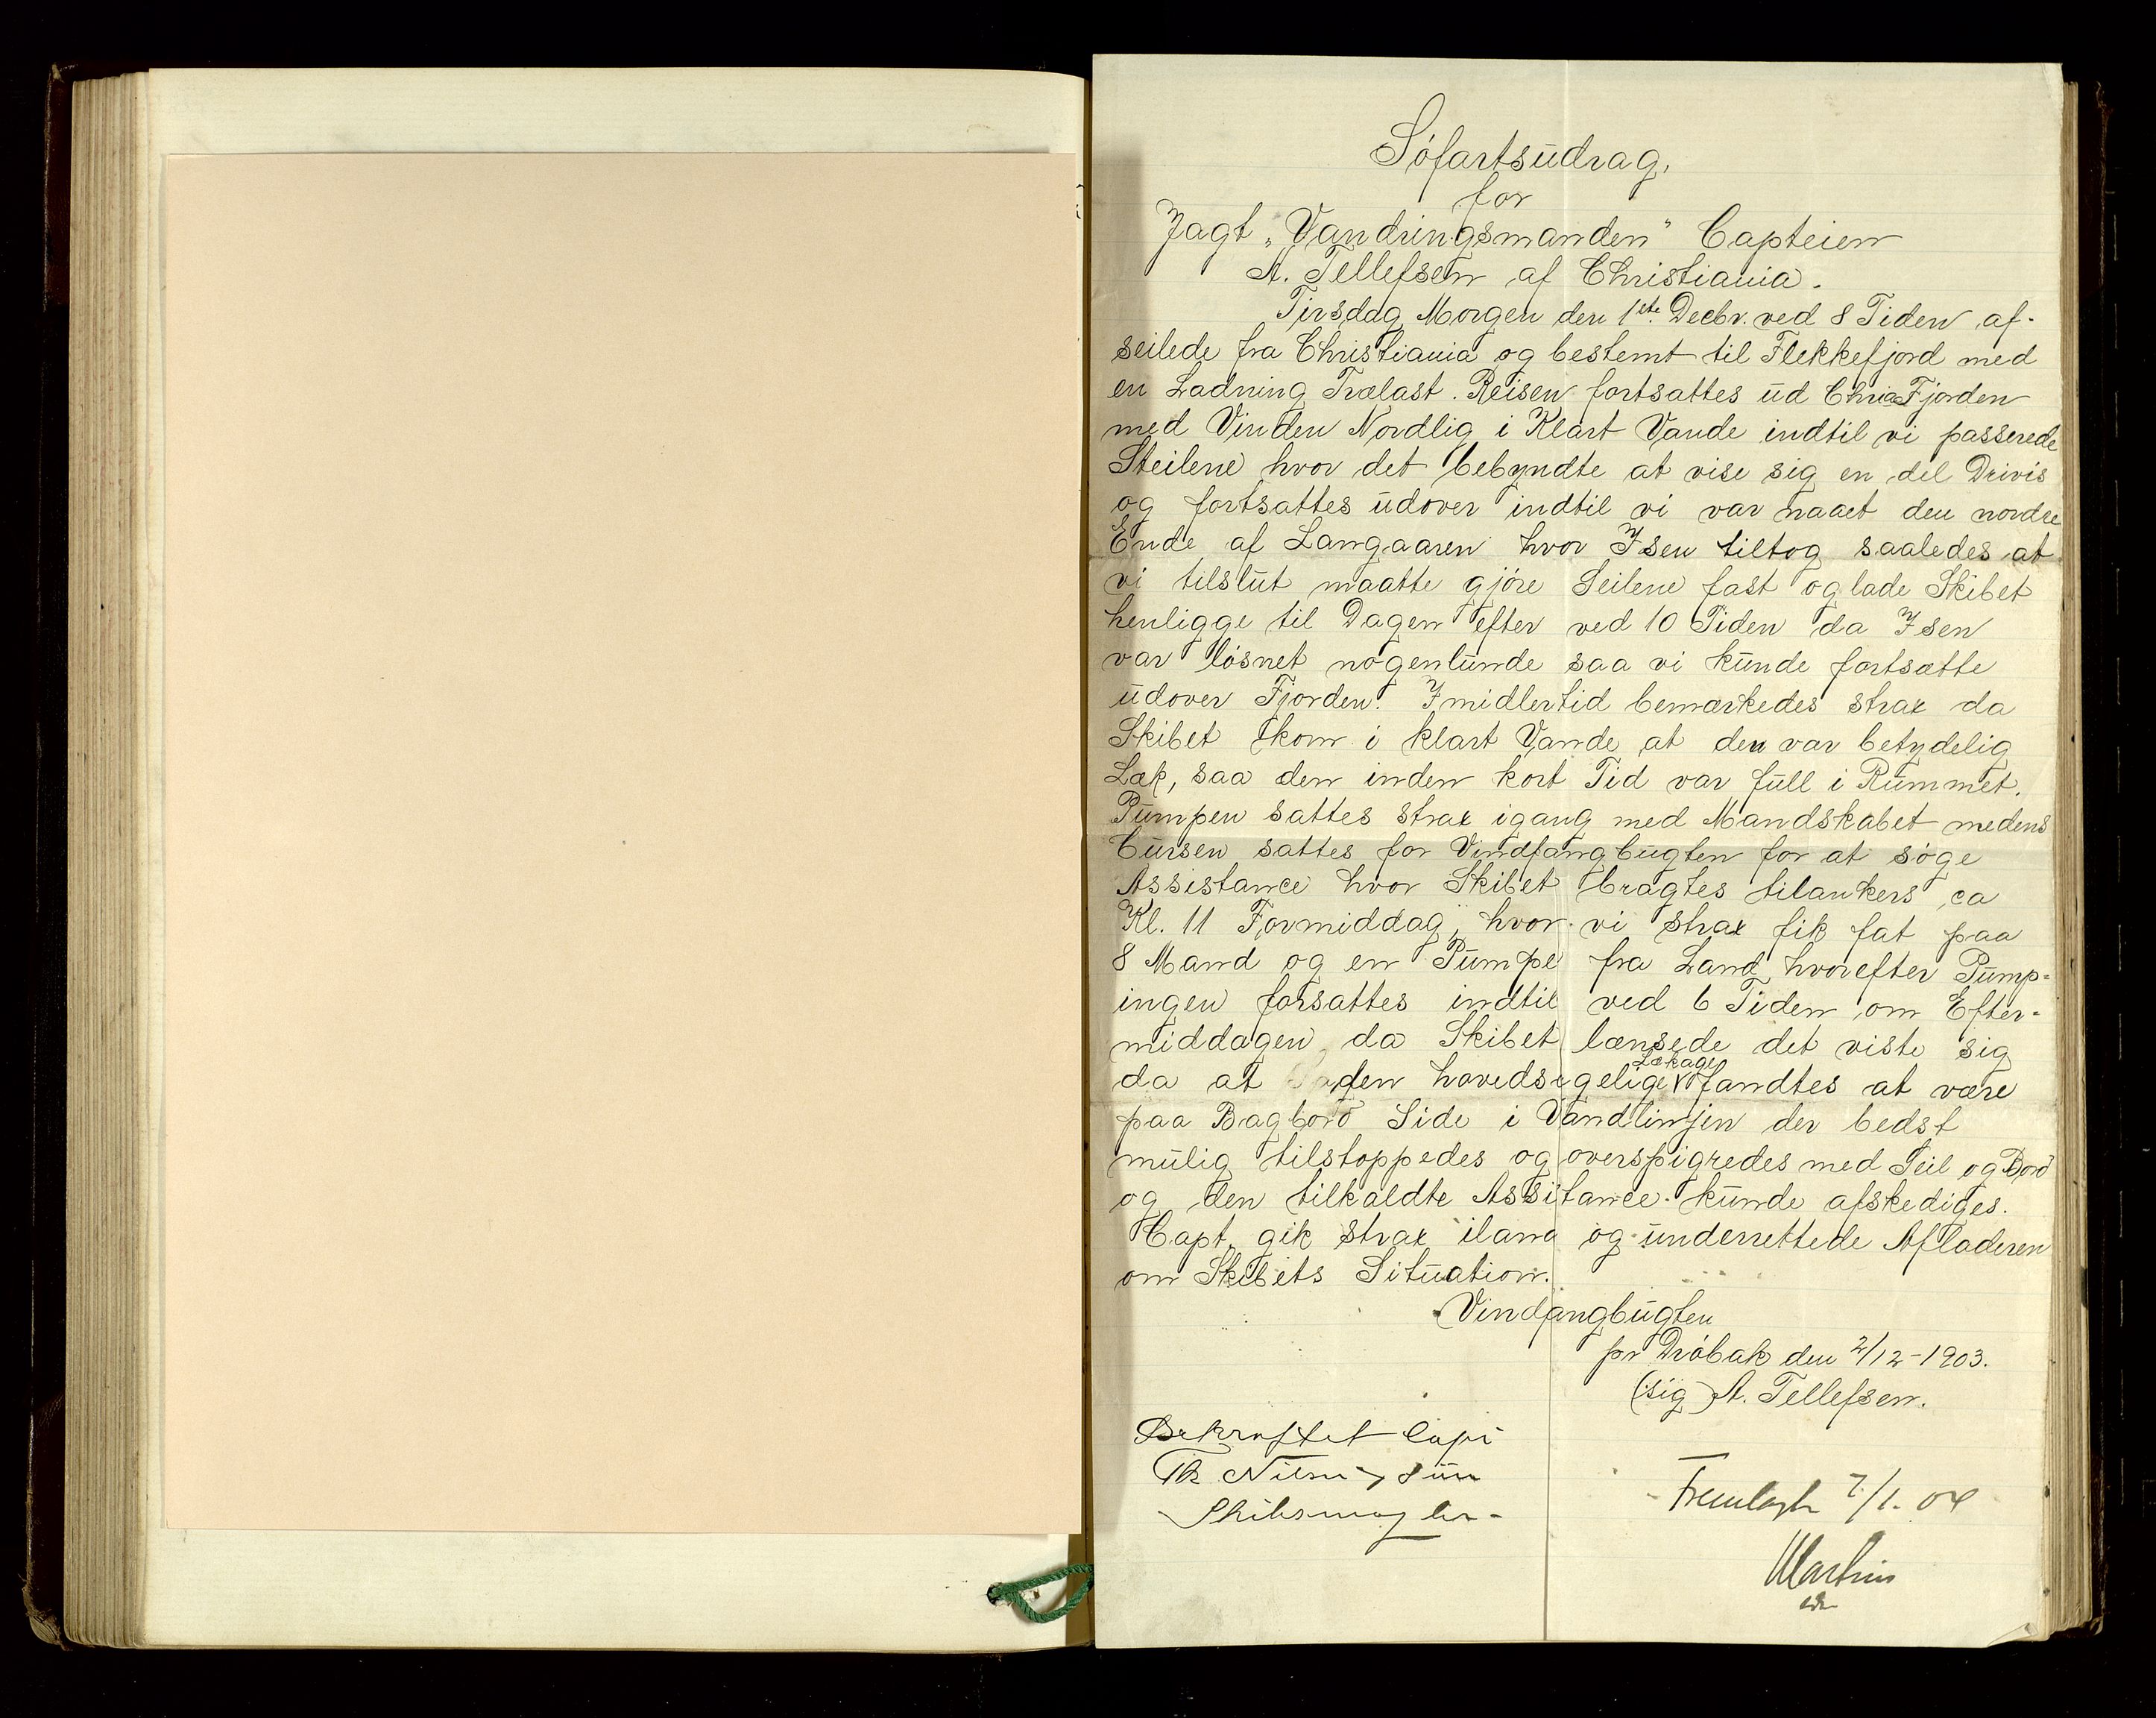 Søfartsudrag,
for
Jagt „Vandringsmanden" Capteien
A. Tellefsen af Christiania.
Tirsdag Morgen den 1ste Decbr. ved 8 Tiden af-
seilede fra Christiania og bestemt til Flekkefjord med
en Ladning Trælast. Reisen fortsattes ud Chria Fjorden
med Vinden Nordlig i Klart Vande indtil vi passerede
Steilene hvor det bebyndte at vise sig en del Drivis
og fortsattes udover indtil vi var naaet den nordre
Ende af Langaaren hvor Isen tiltog saaledes at
vi tilslut maatte gjøre Seilene fast og lade Skibet
henligge til Dagen efter ved 10 Tiden da Isen
var løsnet nogenlunde saa vi kunde fortsætte
udover Fjorden. Imidlertid bemærkedes strax da
Skibet kom i klart Vande at den var betydelig
Læk, saa den inden kort Tid var full i Rummet.
Pumpen sattes strax igang med Mandskabet medens
Cursen sattes for Vindfangbugten for at søge
Assistance hvor Skibet bragtes tilankers ca
Kl. 11 Formiddag, hvor vi strax fik fat paa
8 Mand og en Pumpe fra Land hvorefter Pump-
ingen forsattes indtil ved 6 Tiden om Efter-
middagen da Skibet lænsede det viste sig
da at den hovedsigelige Lækage fandtes at være
paa Bagbord Side i Vandlinjen der bedst
mulig tilstoppedes og overspigredes med Seil og Bord
og den tilkaldte Assitance kunde afskediges.
Capt. gik strax iland og underrettede Afladeren
om Skibets Situation.
Vindfangbugten
pr Drøbak den 2/12-1903.
(sig) A. Tellefsen.
Bekræftet Copi
Th Nilsen & Søn
Skibsmægler
Fremlagt 7/1. 04
Martin